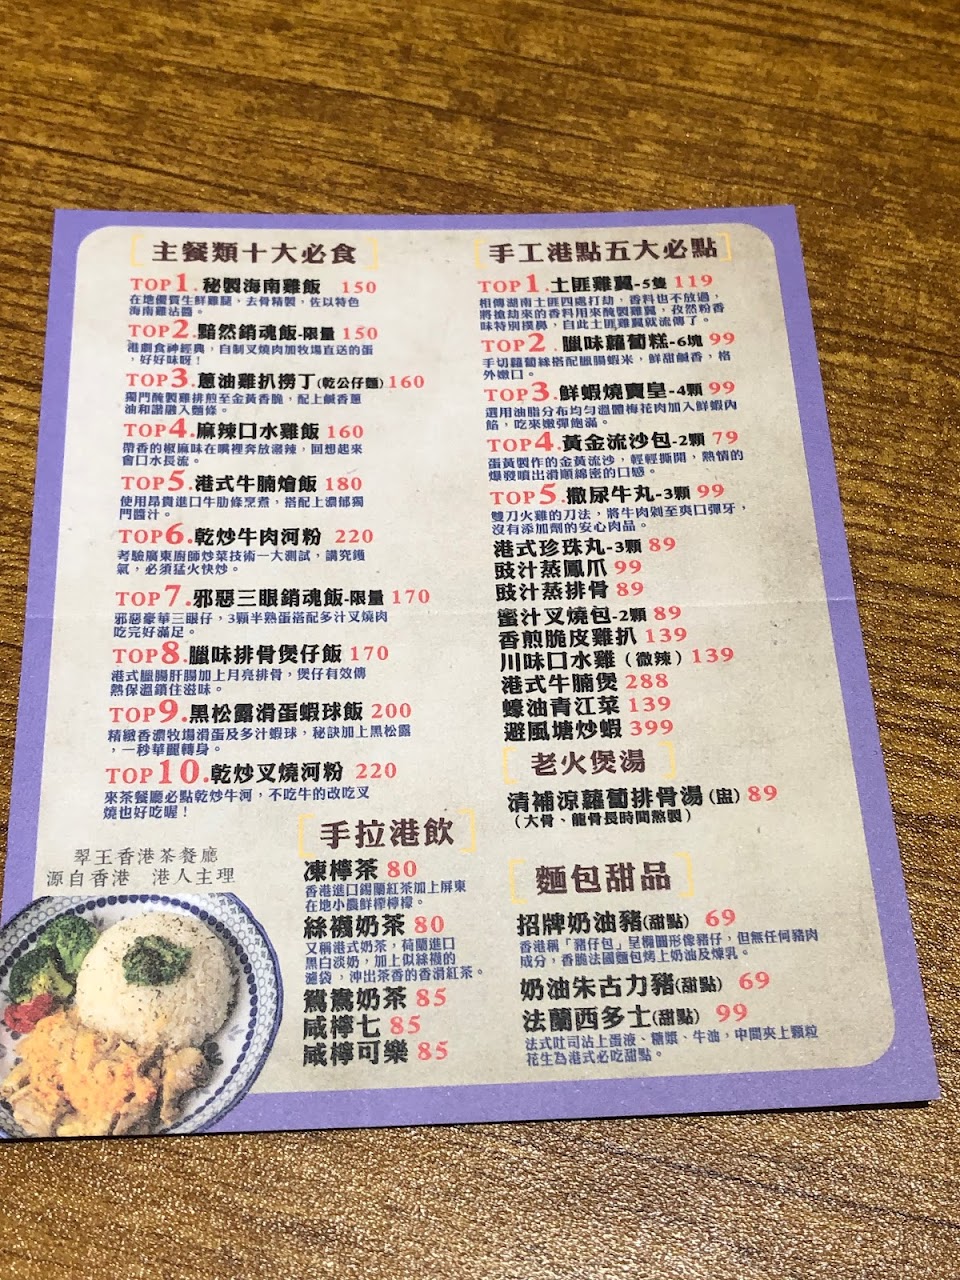 主餐類十大必食
TOP1.秘製海南雞飯 150
在地優質生鮮雞腿，去骨精製，佐以特色
海南雞沾醬。
TOP2.黯然銷魂飯-限量 150
港劇食神經典，自制叉燒肉加牧場直送的蛋
，好好味呀！
TOP3.蔥油雞扒撈丁(乾公仔麵)160
獨門醃製雞排煎至金黃香脆，配上鹹香蔥
油和諧融入麵條。
TOP4.麻辣口水雞飯 160
帶香的椒麻味在嘴裡奔放濃辣，回想起來
會口水長流。
TOP5.港式牛腩燴飯 180
使用昂貴進口牛肋條烹煮，搭配上濃郁獨
門醬汁。
TOP6.乾炒牛肉河粉 220
考驗廣東廚師炒菜技術一大測試，講究鑊
氣，必須猛火快炒。
TOP7.邪惡三眼銷魂飯-限量 170
邪惡豪華三眼仔，3顆半熟蛋搭配多汁叉燒肉
吃完好滿足。
TOP8.臘味排骨煲仔飯 170
港式臘腸肝腸加上月亮排骨，煲仔有效傳
熱保溫鎖住滋味。
TOP9.黑松露滑蛋蝦球飯 200
精緻香濃牧場滑蛋及多汁蝦球，秘訣加上黑松露
，一秒華麗轉身。
TOP10.乾炒叉燒河粉 220
來茶餐廳必點乾炒牛河，不吃牛的改吃叉
燒也好吃喔！
翠王香港茶餐廳
源自香港 港人主理
手拉港飲
凍檸茶 80
香港進口錫蘭紅茶加上屏東
在地小農鮮榨檸檬。
絲襪奶茶 80
又稱港式奶茶，荷蘭進口
黑白淡奶，加上似絲襪的
濾袋，沖出茶香的香滑紅茶。
鴛鴦奶茶 85
咸檸七 85
咸檸可樂 85
手工港點五大必點
TOP1.土匪雞翼-5隻 119
相傳湖南土匪四處打劫，香料也不放過，
將搶劫來的香料用來醃製雞翼，孜然粉香
味特別撲鼻，自此土匪雞翼就流傳了。
TOP2.臘味蘿蔔糕-6塊 99
手切蘿蔔絲搭配臘腸蝦米，鮮甜鹹香，格
外嫩口。
TOP3.鮮蝦燒賣皇-4顆 99
選用油脂分布均勻溫體梅花肉加入鮮蝦內
餡，吃來嫩彈飽滿。
TOP4.黃金流沙包-2顆 79
蛋黃製作的金黃流沙，輕輕撕開，熱情的
爆發噴出滑順綿密的口感。
TOP5.撒尿牛丸-3顆 99
雙刀火雞的刀法，將牛肉剁至爽口彈牙，
沒有添加劑的安心肉品。
港式珍珠丸-3顆 89
豉汁蒸鳳爪 99
豉汁蒸排骨 89
蜜汁叉燒包-2顆 89
香煎脆皮雞扒 139
川味口水雞（微辣）139
港式牛腩煲 288
蠔油青江菜 139
避風塘炒蝦 399
老火煲湯
清補涼蘿蔔排骨湯(盅)89
（大骨、龍骨長時間熬製）
麵包甜品
招牌奶油豬(甜點) 69
香港稱「豬仔包」呈橢圓形像豬仔，但無任何豬肉
成分，香脆法國麵包烤上奶油及煉乳。
奶油朱古力豬(甜點) 69
法蘭西多士(甜點) 99
法式吐司沾上蛋液、糖漿、牛油，中間夾上顆粒
花生為港式必吃甜點。